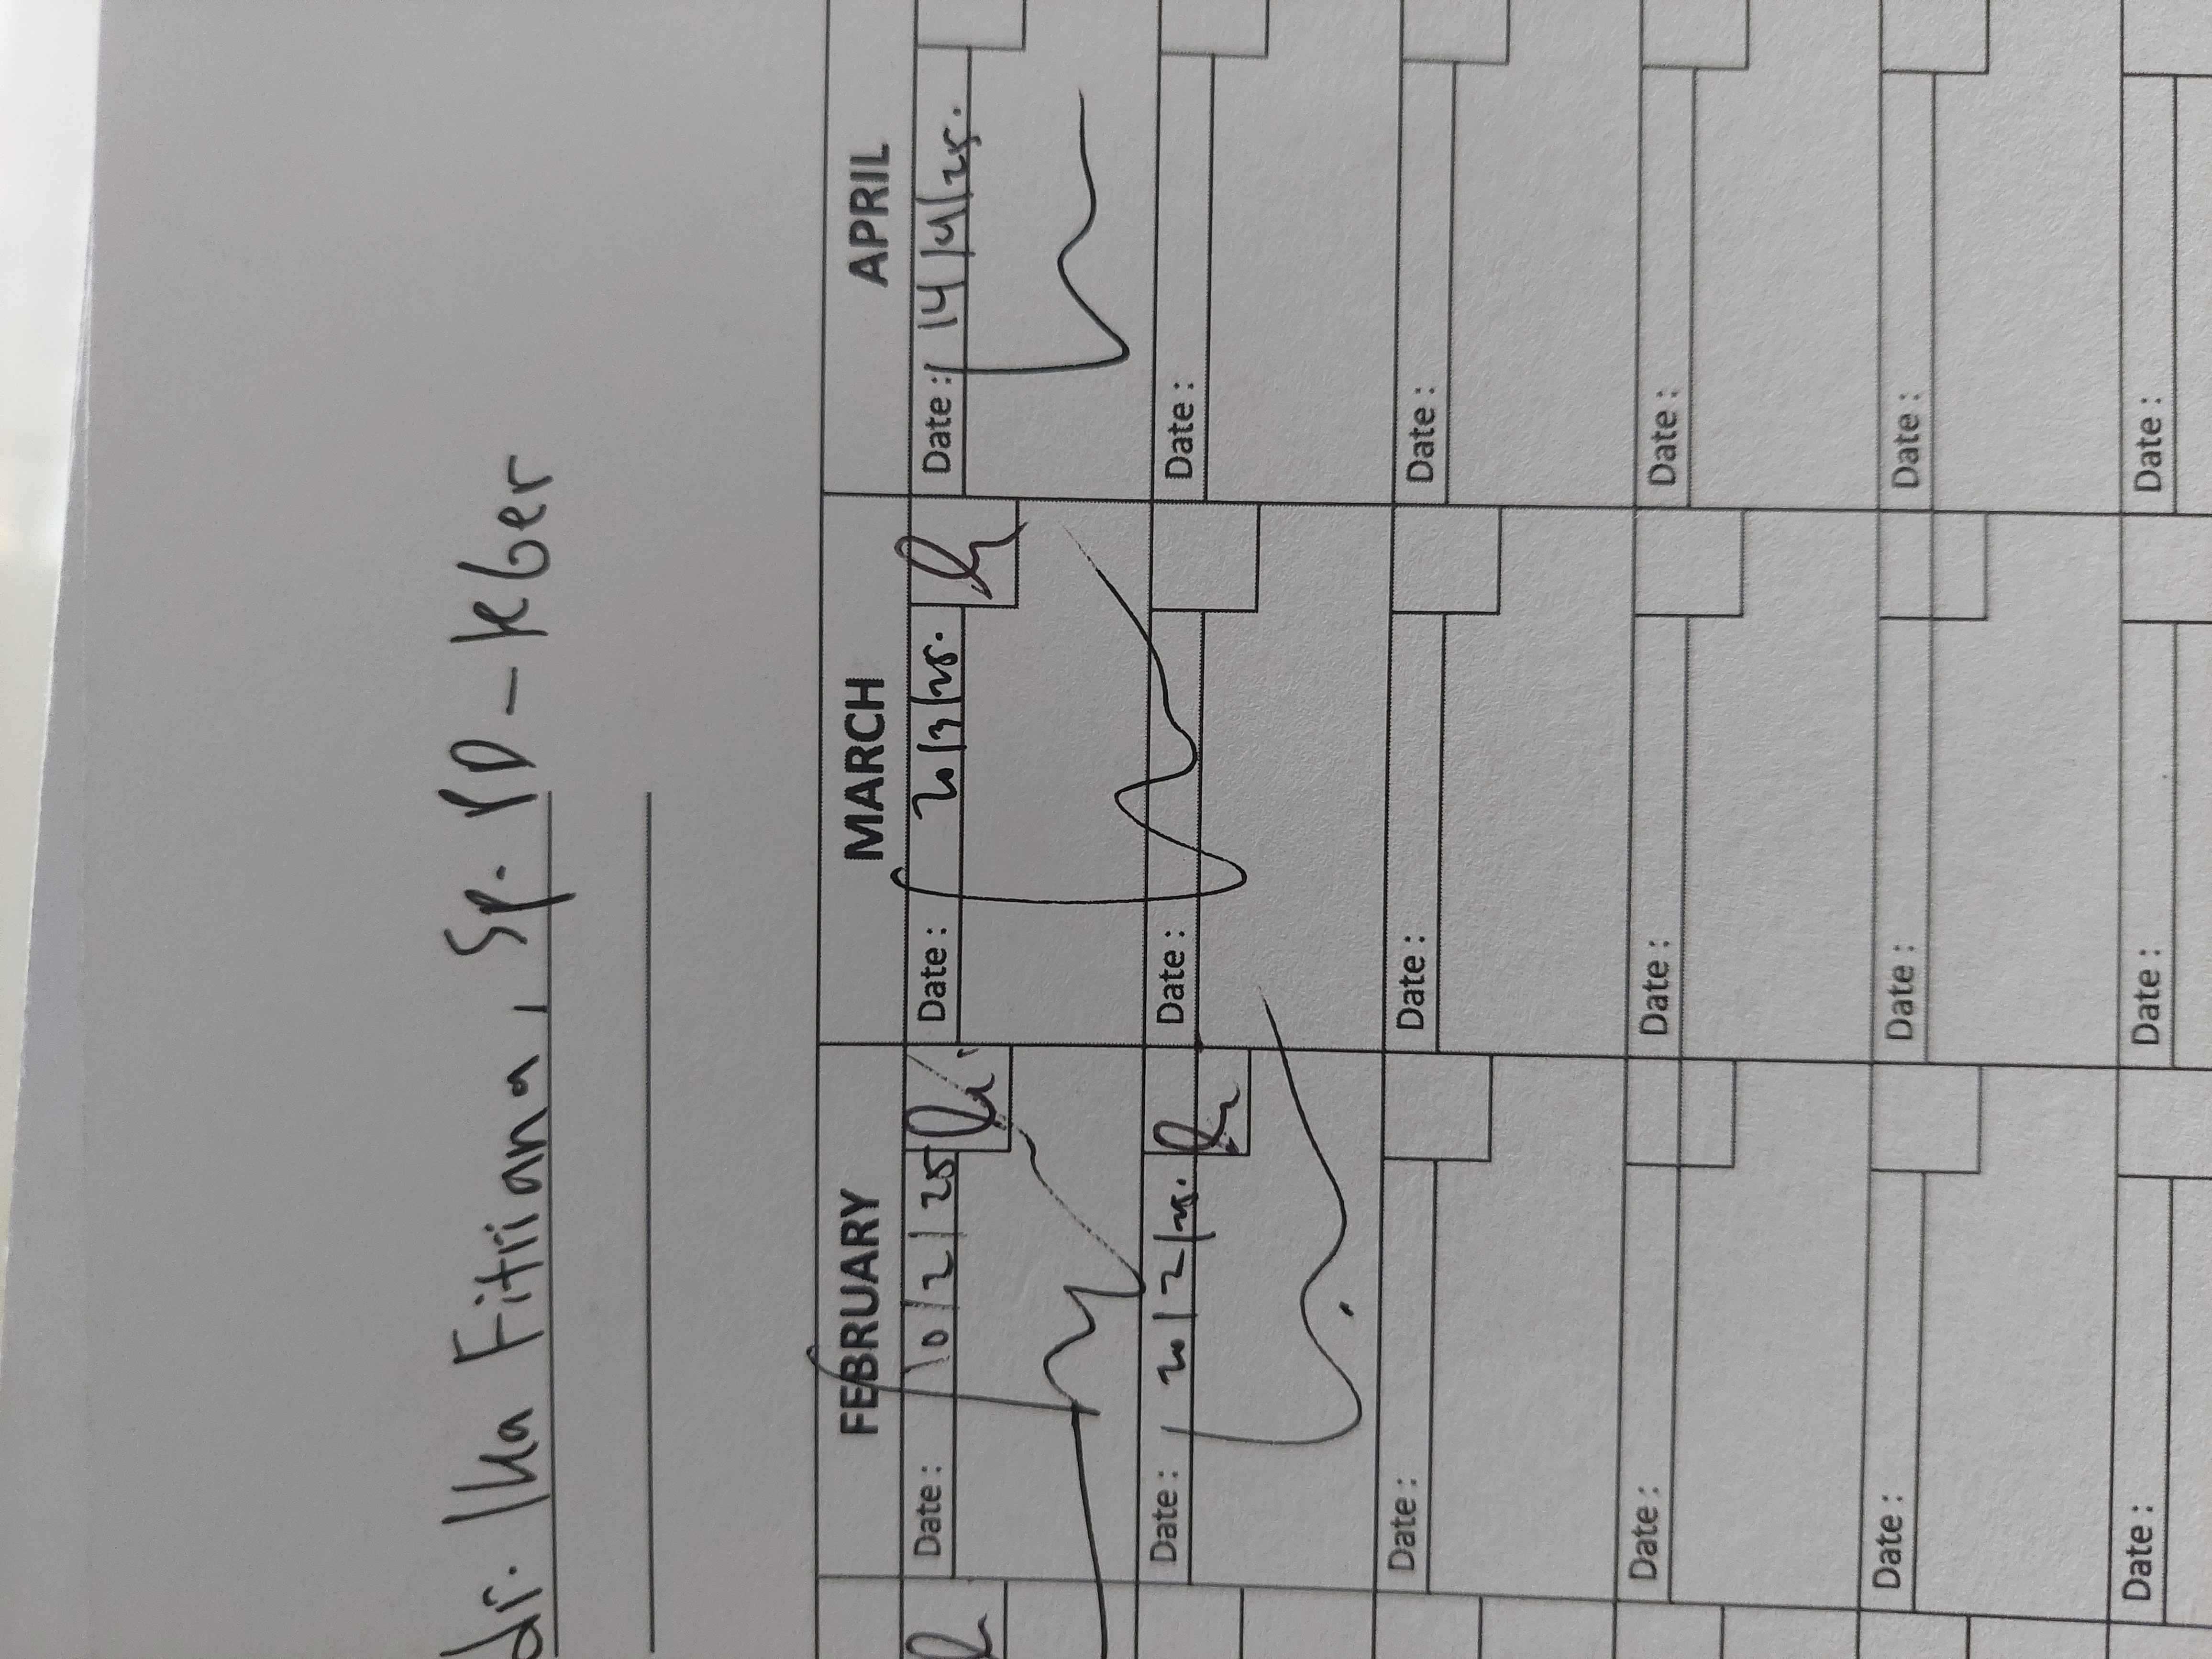 dr. Ika Fitriana, Sp. PD-KGer
FEBRUARY MARCH APRIL
Date: 10/2/25 Date: 20/3/25. Date: 14/4/25.
Date: 20/2/25. Date: Date:
Date: Date: Date:
Date: Date: Date:
Date: Date: Date:
Date: Date: Date: